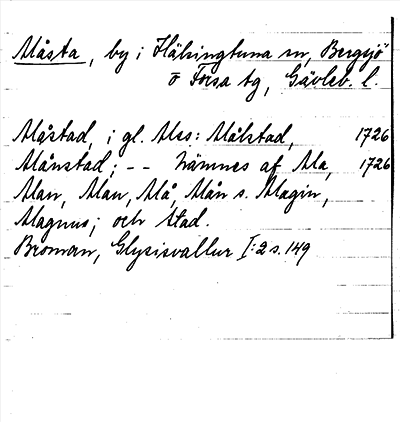 Måsta, by i Hälsingtuna sn, Bergsjö
o Forsa tg, Gävleb. l.
Måstad, i gl. Mss: Målstad, 1726
Månstad; -- nämnes af Ma, 1726
Man, Man, Må, Mån s. Magin,
Magnus; och stad.
Broman, Glysisvallur I:2 s. 149